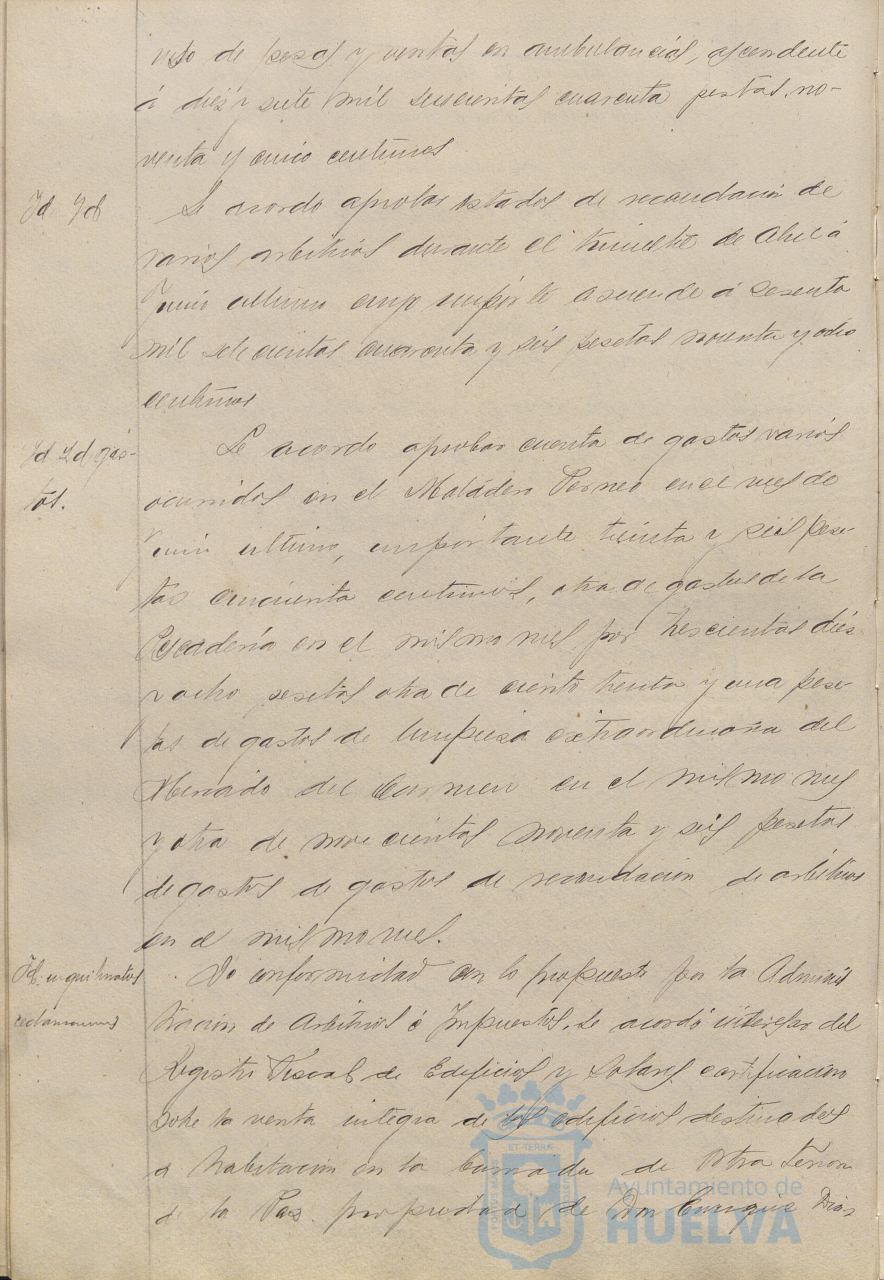 peso de pesas y ventas en ambulancias, ascendente
á diez y siete mil seiscientas cuarenta pestas no-
venta y cinco centimos
Id Id
Se acordo aprobar estados de recaudacion de
varios arbitrios durante el trimestre de Abril á
Junio ultimo cuyo importe asciende á sesenta
mil setecientas cuarenta y seis pesetas noventa y ocho
centimos
Id Id gas-
tos.
Se acordo aprobar cuenta de gastos varios
ocurridos en el Matadero Porneo en el mes de
Junio ultimo, importante treinta y seis pese-
tas cincuenta centimos, otra de gastos de la
Pescaderia en el mismo mes por trescientas diez
y ocho pesetas otra de ciento treinta y una pese-
tas de gastos de limpieza extraordinaria del
Mercado del Carmen en el mismo mes
y otra de novecientas noventa y seis pesetas
de gastos de gastos de recaudacion de arbitrios
en el mismo mes.
Id. inquilinatos
reclamaciones
De conformidad con lo propuesto por la Adminis
tracion de Arbitrios é Impuestos, se acordó interesar del
Registro Fiscal de Edificios y Solares certificacion
sobre la venta integra de los edificios destinados
a habitacion en la barriada de Ntra Señora
de la Paz propiedad de Don Enrique Diaz
ET TERRÆ
Ayuntamiento de
HUELVA